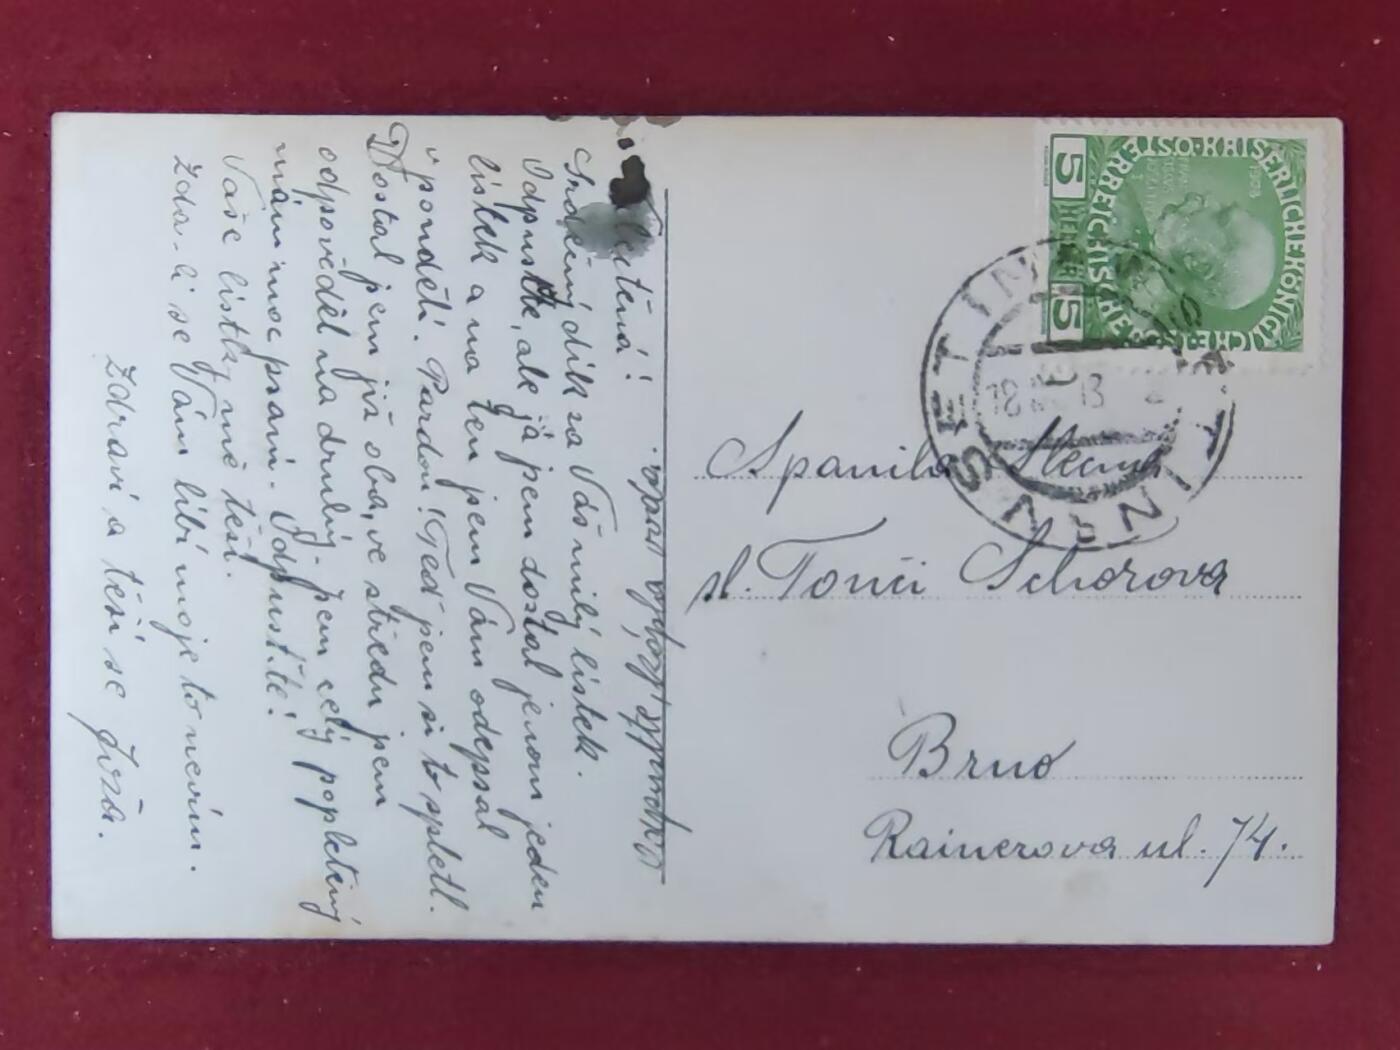 Srdečný dík za Váš milý lístek.
Odpusťte, ale já jsem dostal jenom jeden
lístek a na ten jsem Vám odepsal
v pondělí. Pardon! Teď jsem si to spletl.
Dostal jsem již oba, ve středu jsem
odpověděl na druhý. Jsem celý popletený
mám moc psaní. Odpusťte!
Vaše lístky mě těší.
Zda-li se Vám líbí moje to nevím.
Zdraví a těší se Joža.
Spanilá Slečna
sl. Tonči Schorova
Brno
Rainerova ul. 74.
KAISERLICHE KÖNIGLICHE ÖSTERREICHISCHE
1908
5 HELLER 5
VSETIN
18 13